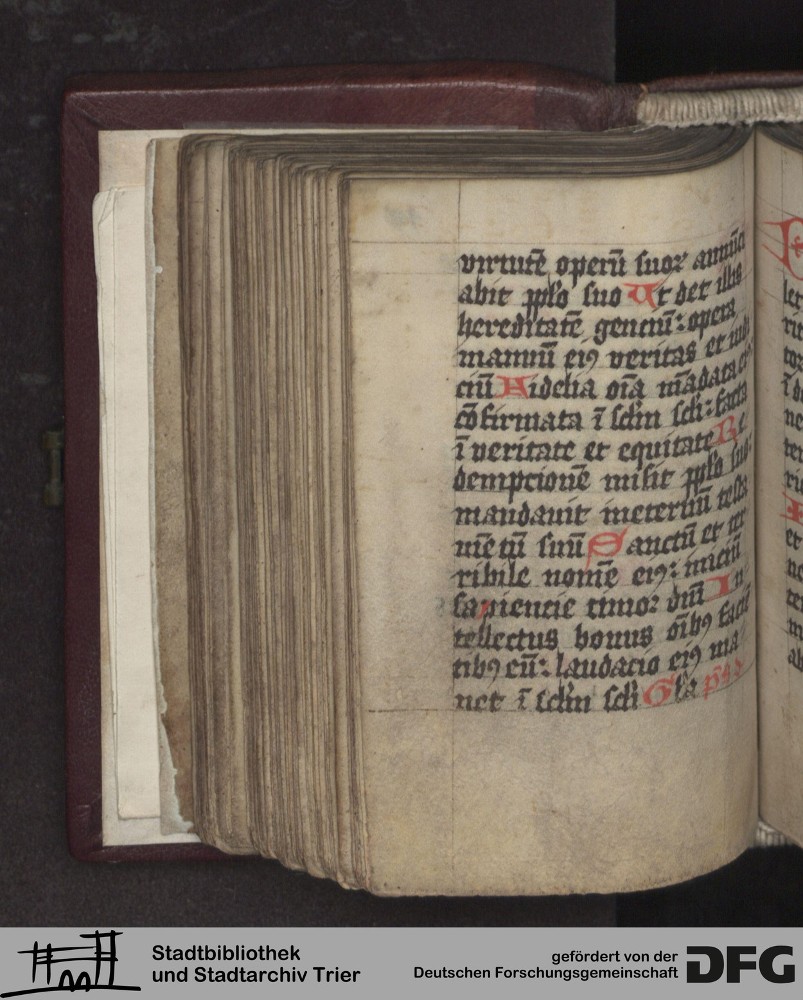 virtutē operū suoꝝ annūci
abit pplo suo Ut det illis
hereditatē genciū: opera
manuū eiꝰ veritas et iudi
ciū Fidelia oīa mādata eiꝰ
cōfirmata ī sclm scli: facta
ī veritate et equitate Re
dempcionē misit pplo suo:
mandauit ineternū testa
mētū suū Sanctū et ter
ribile nomē eiꝰ: iniciū
sapiencie timor dnī In
tellectus bonus oībꝰ facien
tibꝰ eū: laudacio eiꝰ ma
net ī sclm scli Gla
Stadtbibliothek
und Stadtarchiv Trier
gefördert von der
Deutschen Forschungsgemeinschaft
DFG